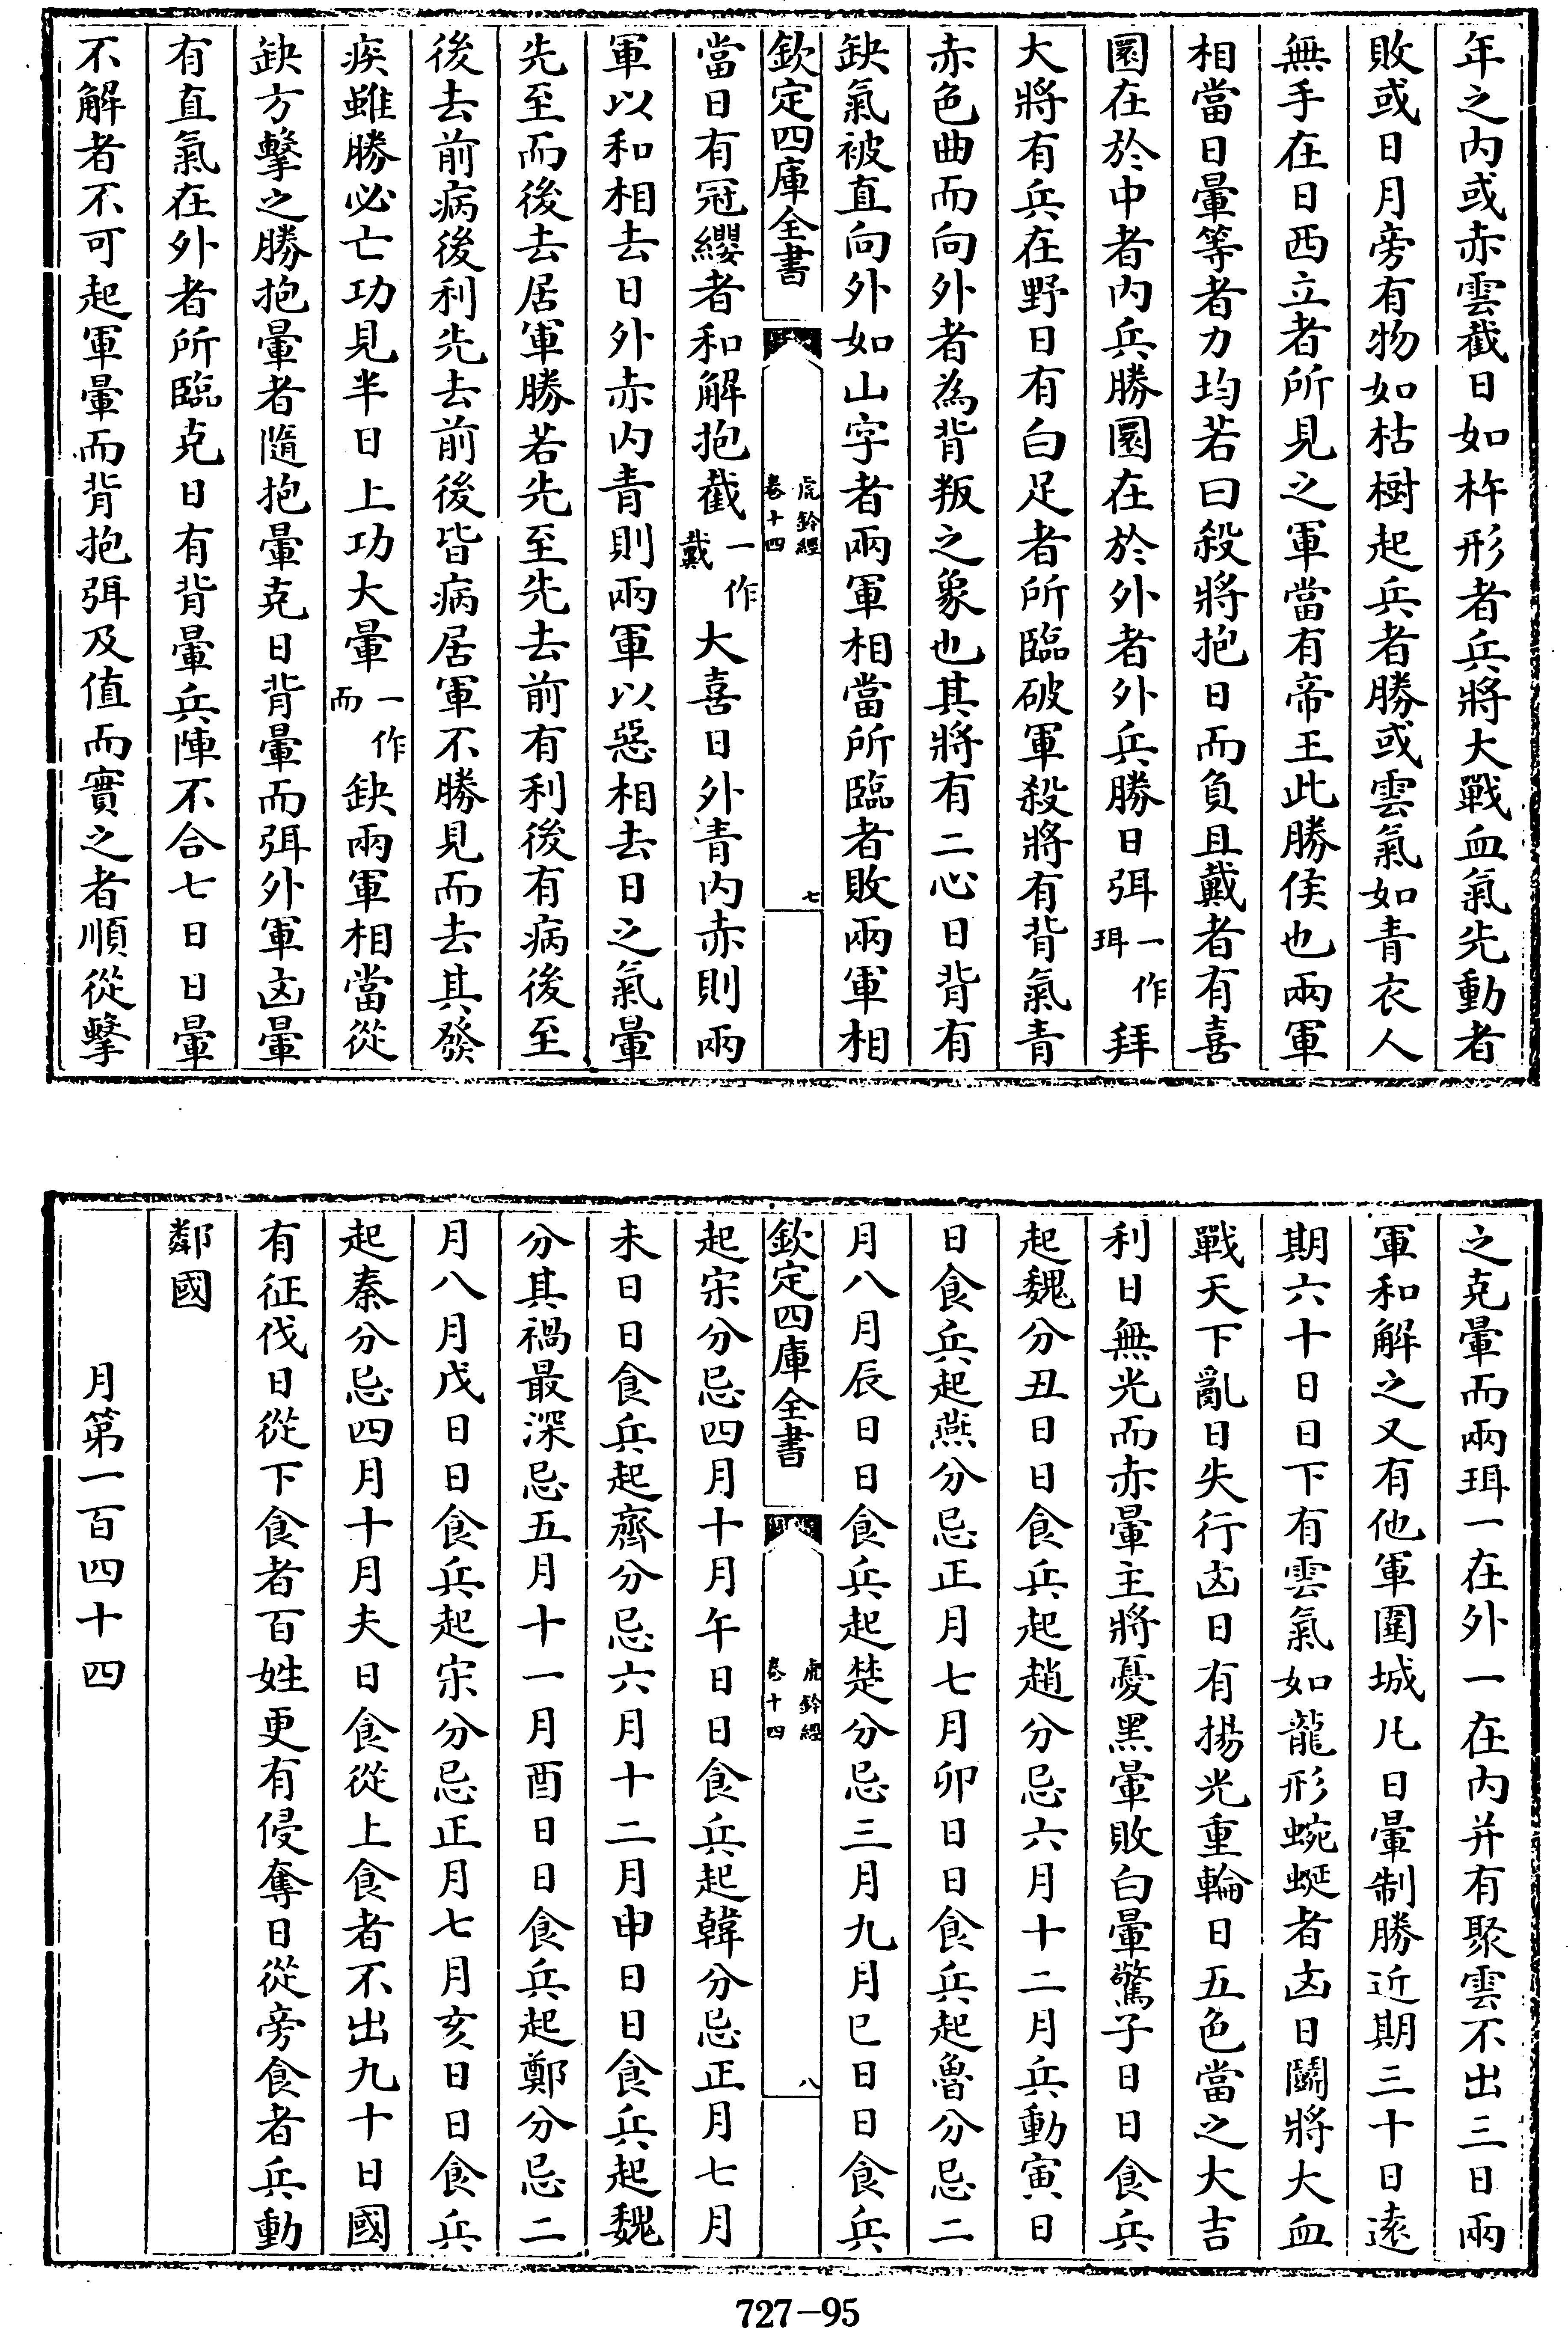 年之内或赤雲截日如杵形者兵將大戰血氣先動者
敗或日月旁有物如枯樹起兵者勝或雲氣如青衣人
無手在日西立者所見之軍當有帝王此勝侯也兩軍
相當日暈等者力均若曰殺將抱日而負且戴者有喜
圜在於中者内兵勝圜在於外者外兵勝日弭一作珥拜
大將有兵在野日有白足者所臨破軍殺將有背氣青
赤色曲而向外者為背叛之象也其將有二心日背有
缺氣被直向外如山字者兩軍相當所臨者敗兩軍相
欽定四庫全書 虎鈐經 卷十四 七
當日有冠纓者和解抱截一作戴大喜日外青内赤則兩
軍以和相去日外赤内青則兩軍以惡相去日之氣暈
先至而後去居軍勝若先至先去前有利後有病後至
後去前病後利先去前後皆病居軍不勝見而去其發
疾雖勝必亡功見半日上功大暈一作而缺兩軍相當從
缺方擊之勝抱暈者隨抱暈克日背暈而弭外軍凶暈
有直氣在外者所臨克日有背暈兵陣不合七日日暈
不解者不可起軍暈而背抱弭及值而實之者順從擊
之克暈而兩珥一在外一在内并有聚雲不出三日兩
軍和解之又有他軍圍城凡日暈制勝近期三十日遠
期六十日日下有雲氣如龍形蜿蜒者凶日鬭將大血
戰天下亂日失行凶日有揚光重輪日五色當之大吉
利日無光而赤暈主將憂黑暈敗白暈驚子日日食兵
起魏分丑日日食兵起趙分忌六月十二月兵動寅日
日食兵起燕分忌正月七月卯日日食兵起魯分忌二
月八月辰日日食兵起楚分忌三月九月巳日日食兵
欽定四庫全書 虎鈐經 卷十四 八
起宋分忌四月十月午日日食兵起韓分忌正月七月
未日日食兵起齊分忌六月十二月申日日食兵起魏
分其禍最深忌五月十一月酉日日食兵起鄭分忌二
月八月戊日日食兵起宋分忌正月七月亥日日食兵
起秦分忌四月十月夫日食從上食者不出九十日國
有征伐日從下食者百姓更有侵奪日從旁食者兵動
鄰國
月第一百四十四
727-95